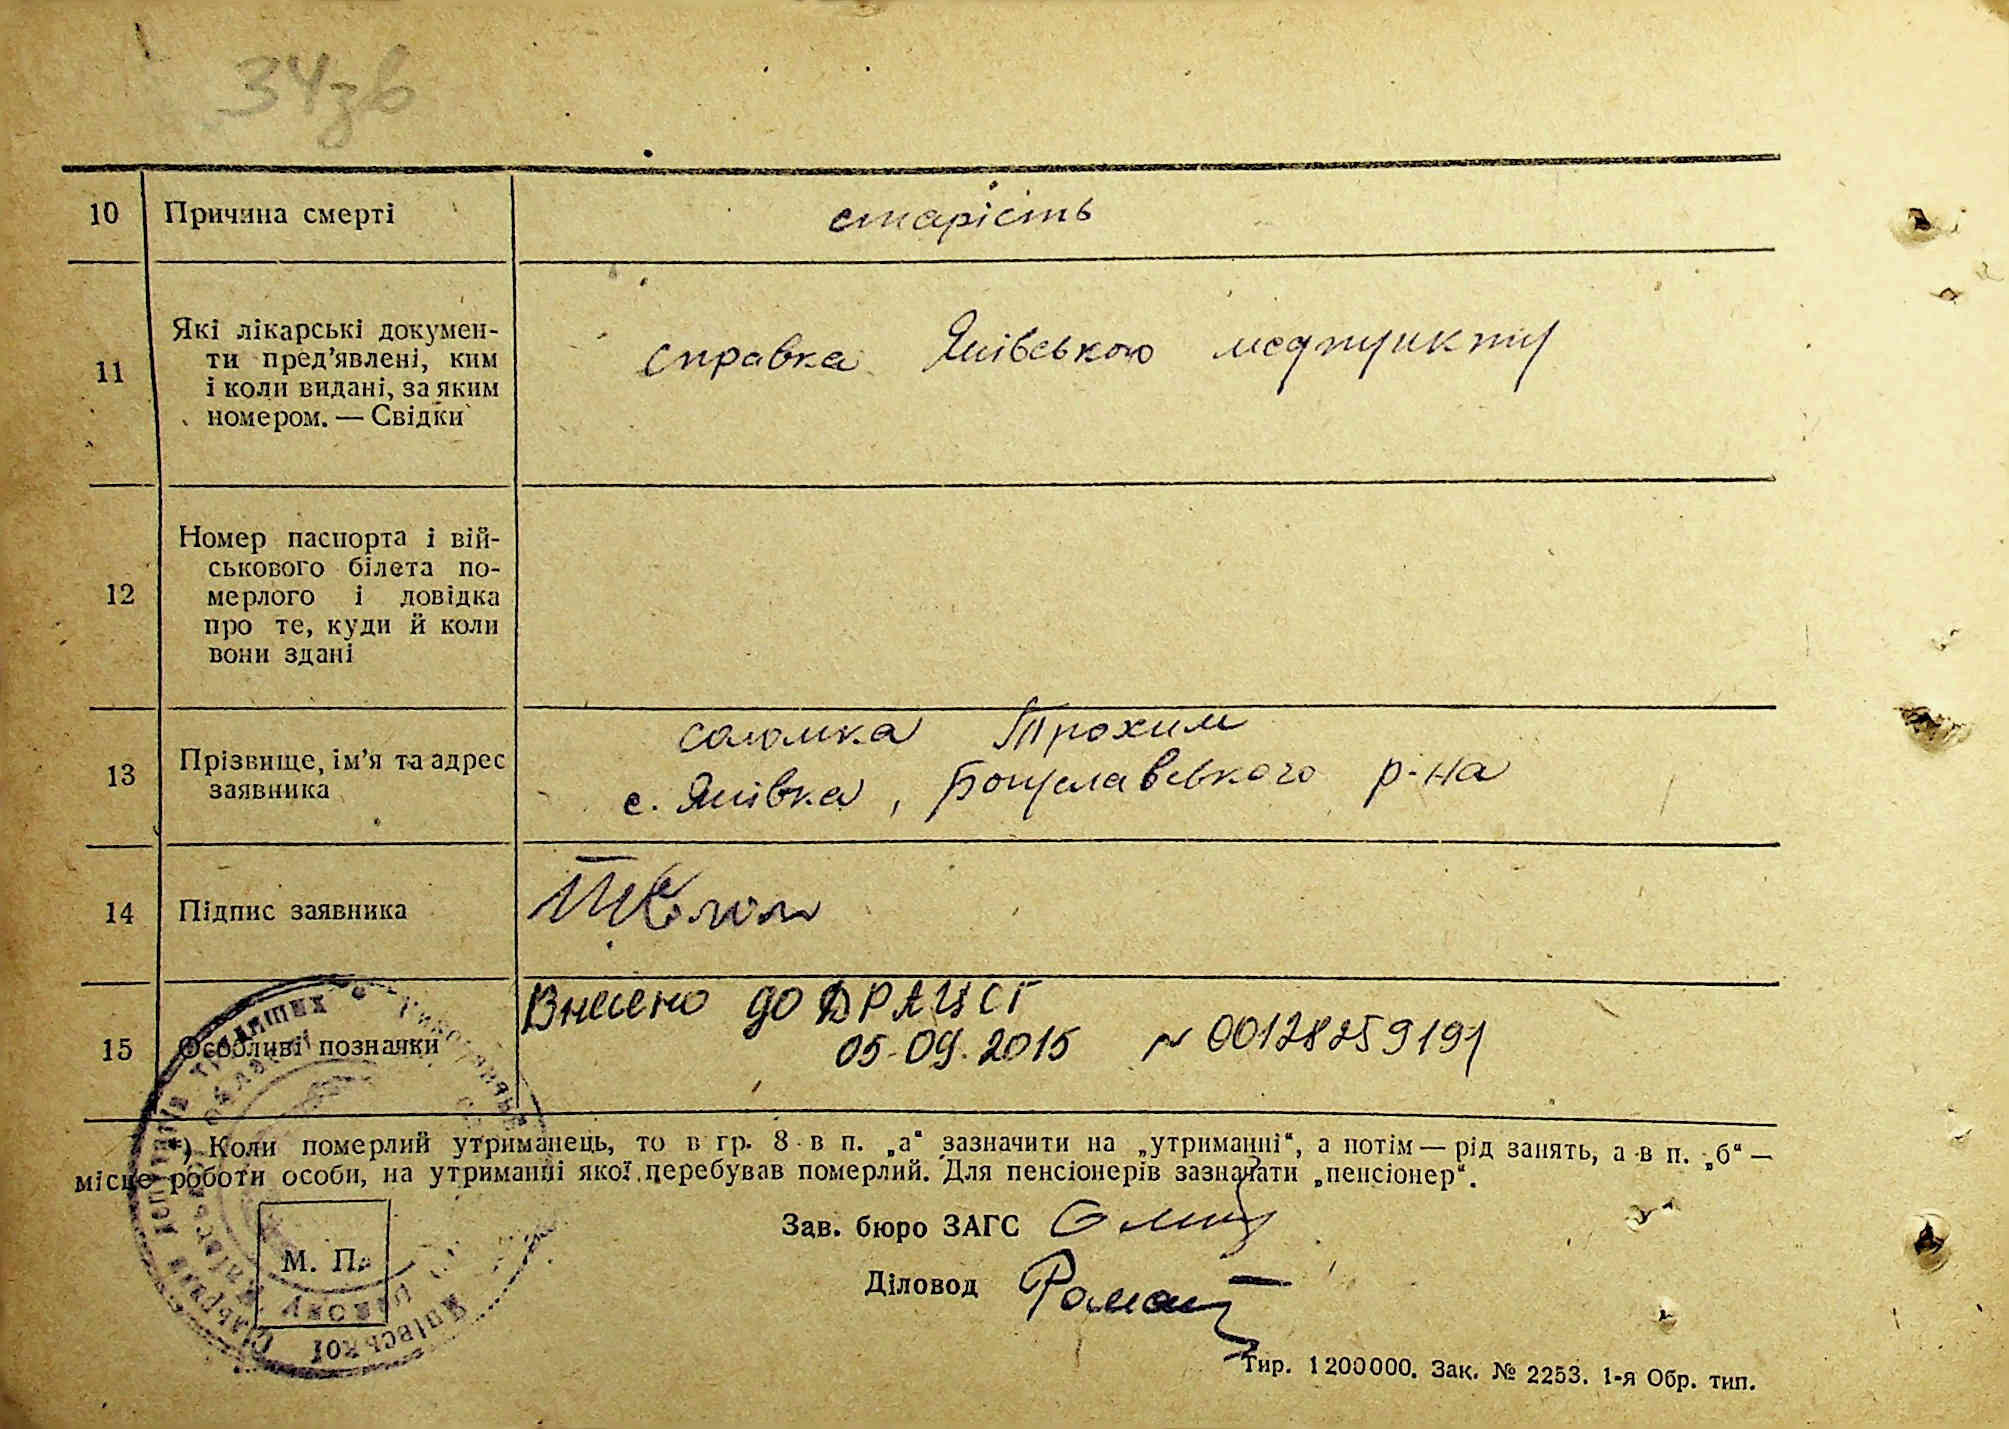 34зв
10 Причина смерті старість
11 Які лікарські докумен-
ти пред’явлені, ким
і коли видані, за яким
номером. — Свідки
справка Яхівського медпункту
12 Номер паспорта і вій-
ськового білета по-
мерлого і довідка
про те, куди й коли
вони здані
13 Прізвище, ім’я та адрес
заявника
Соломка Трохим
с. Яхівка, Богуславського р-на
14 Підпис заявника
15 Особливі позначки
Внесено до ДРАЦСГ
05.09.2015 N 00128259191
*) Коли померлий утриманець, то в гр. 8 в п. „а“ зазначити на „утриманні“, а потім — рід занять, а в п. „б“ —
місце роботи особи, на утриманні якої перебував померлий. Для пенсіонерів зазначати „пенсіонер“.
Зав. бюро ЗАГС
Діловод
М. П.
Тир. 1200000. Зак. № 2253. 1-я Обр. тип.